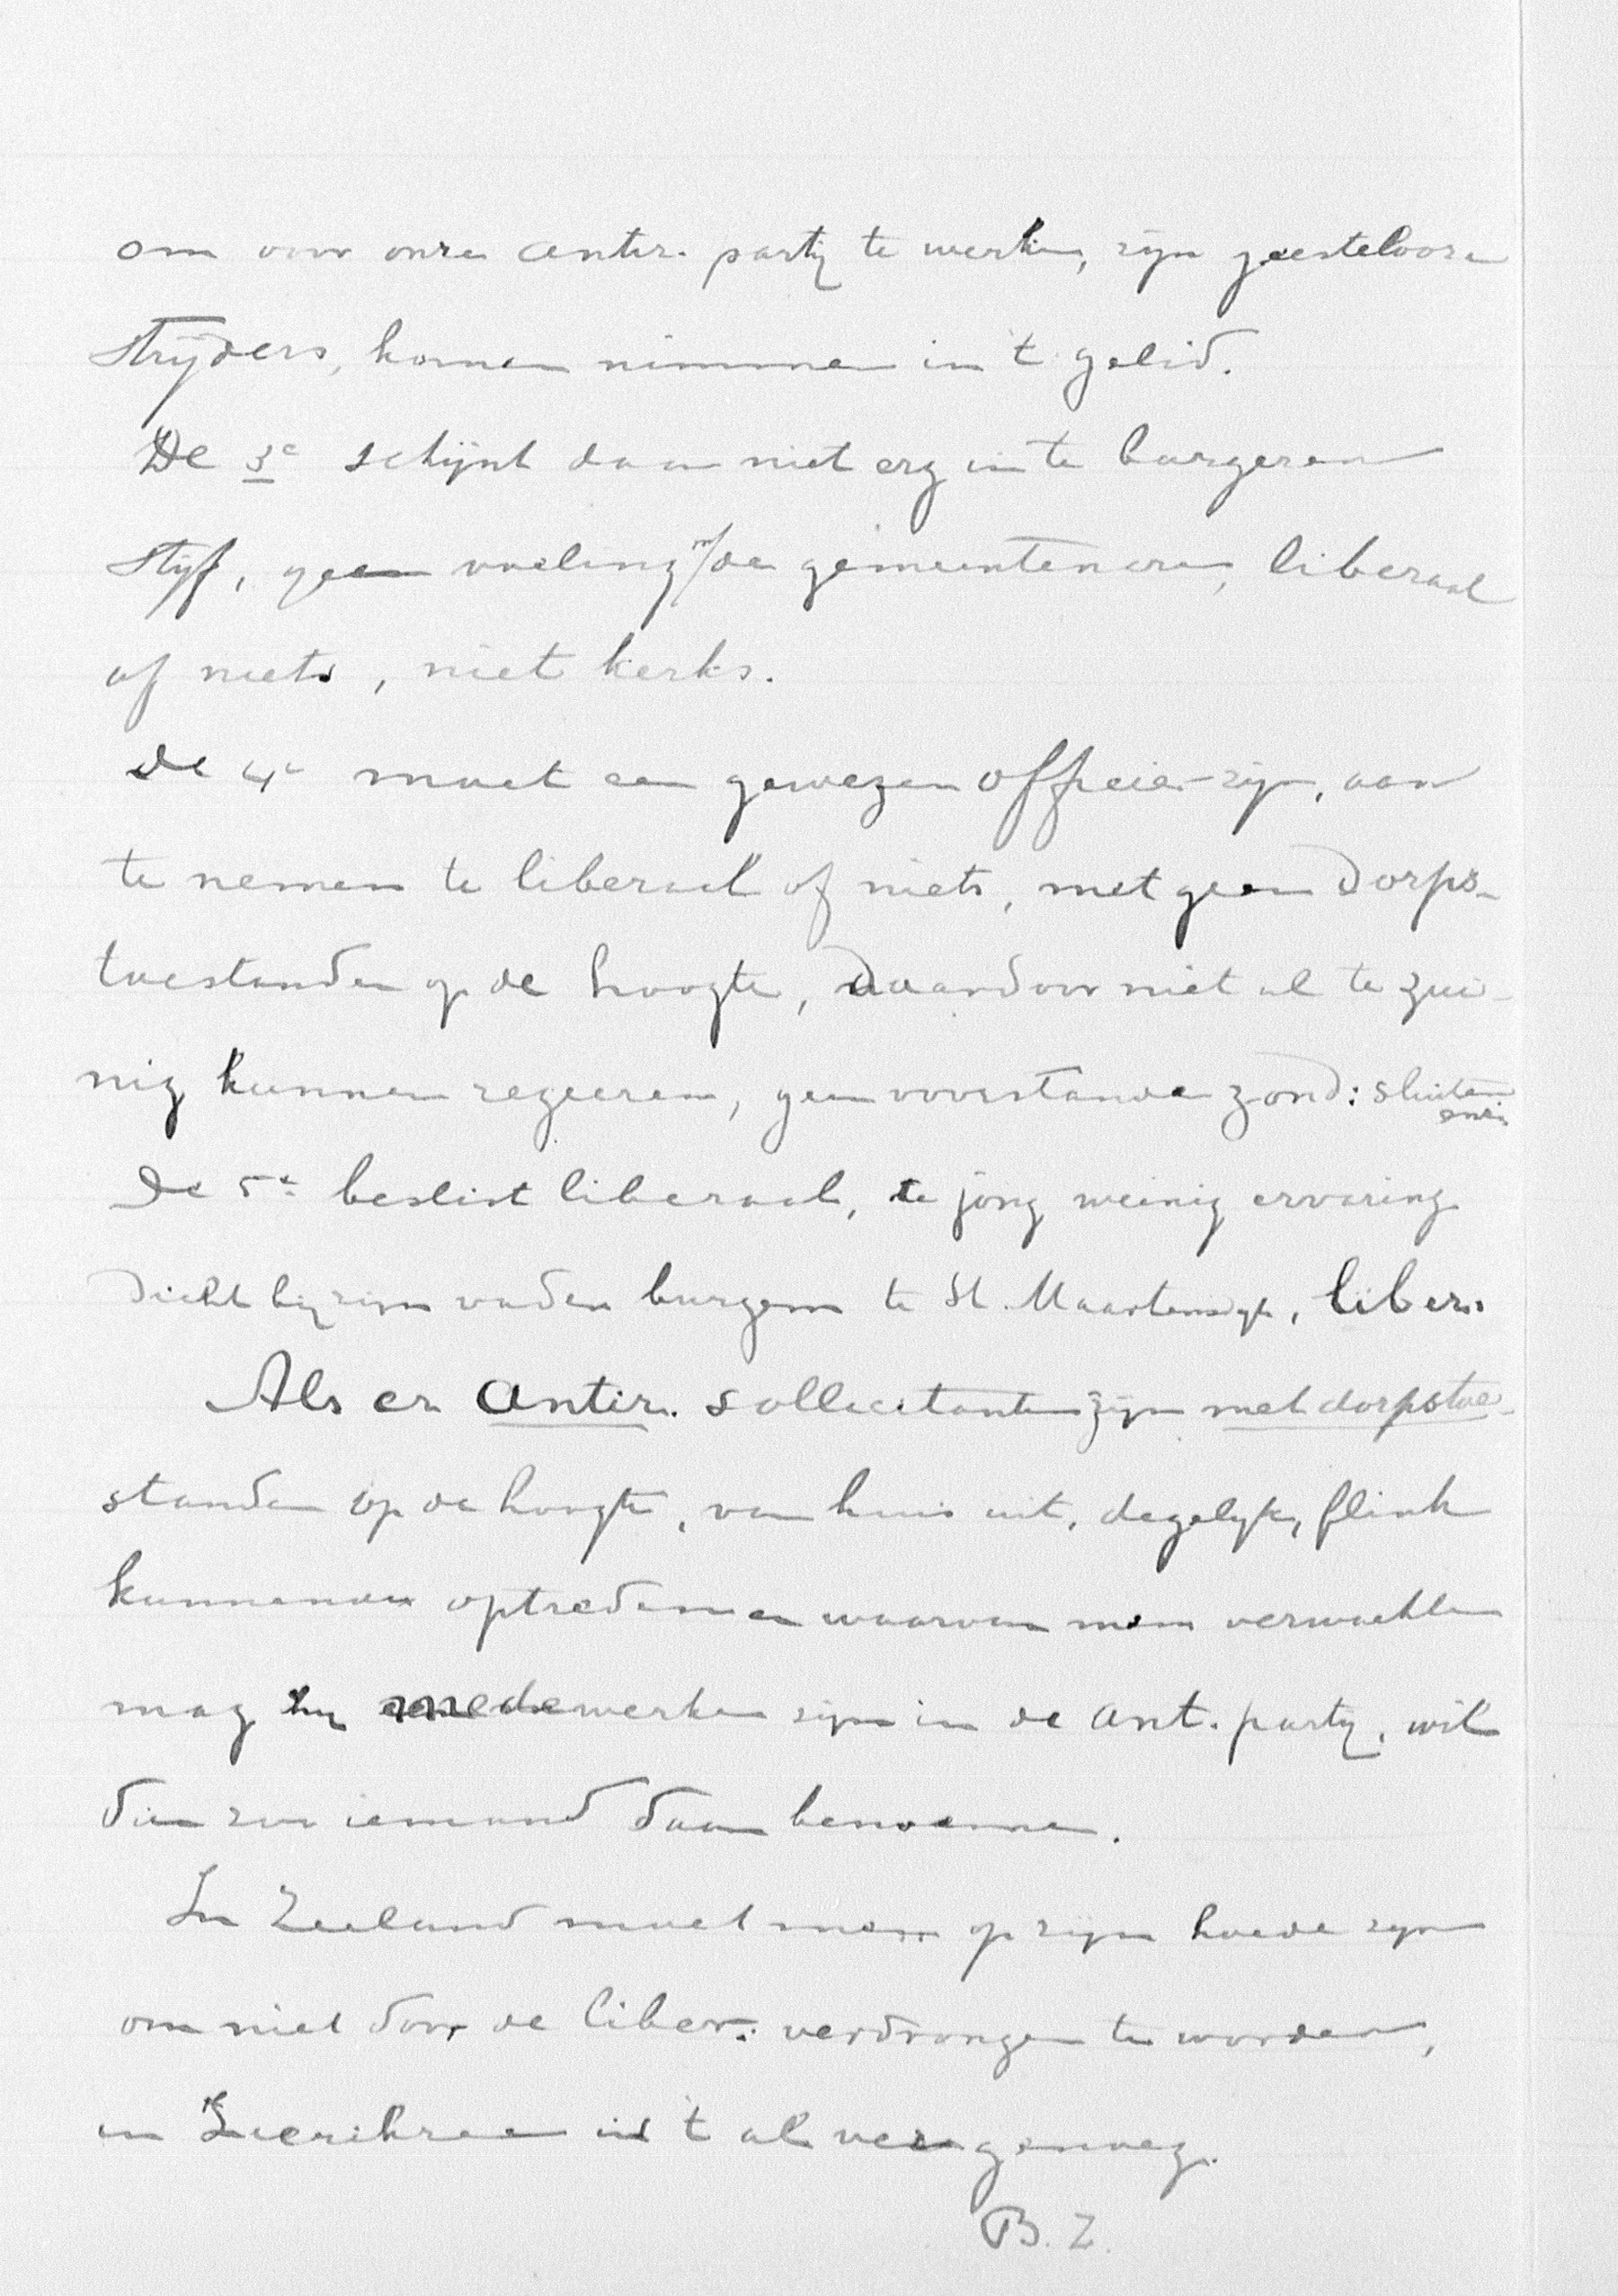 om voor onze antir. partij te werken, zijn geestelooze
strijders, komen nimmer in 't gelid.
De 3e schijnt daar niet erg in te burgeren
stijf, geen voeling m/de gemeentenaren, liberaal
of niets, niet kerks.
De 4e moet een gewezen officier zijn, aan
te nemen te liberaal of niets, met geen dorps-
toestanden op de hoogte, daardoor niet al te zui-
nig kunnen regeeren, geen voorstander zond: sluiten
enz.
De 5e beslist liberaal, te jong weinig ervaring
dicht bij zijn vader burgem te St. Maartensdijk, liber.
Als er antir. sollicitanten zijn met dorpstoe-
standen op de hoogte, van huis uit, degelijk, flink
kunnende optreden en waarvan men verwachten
mag hij medewerker zijn in de ant. partij, wil
dan zoo iemand daar benoemen.
In Zeeland moet men op zijn hoede zijn
om niet door de liber: verdrongen te worden,
in Zierikzee is 't al ver genoeg.
B. Z.